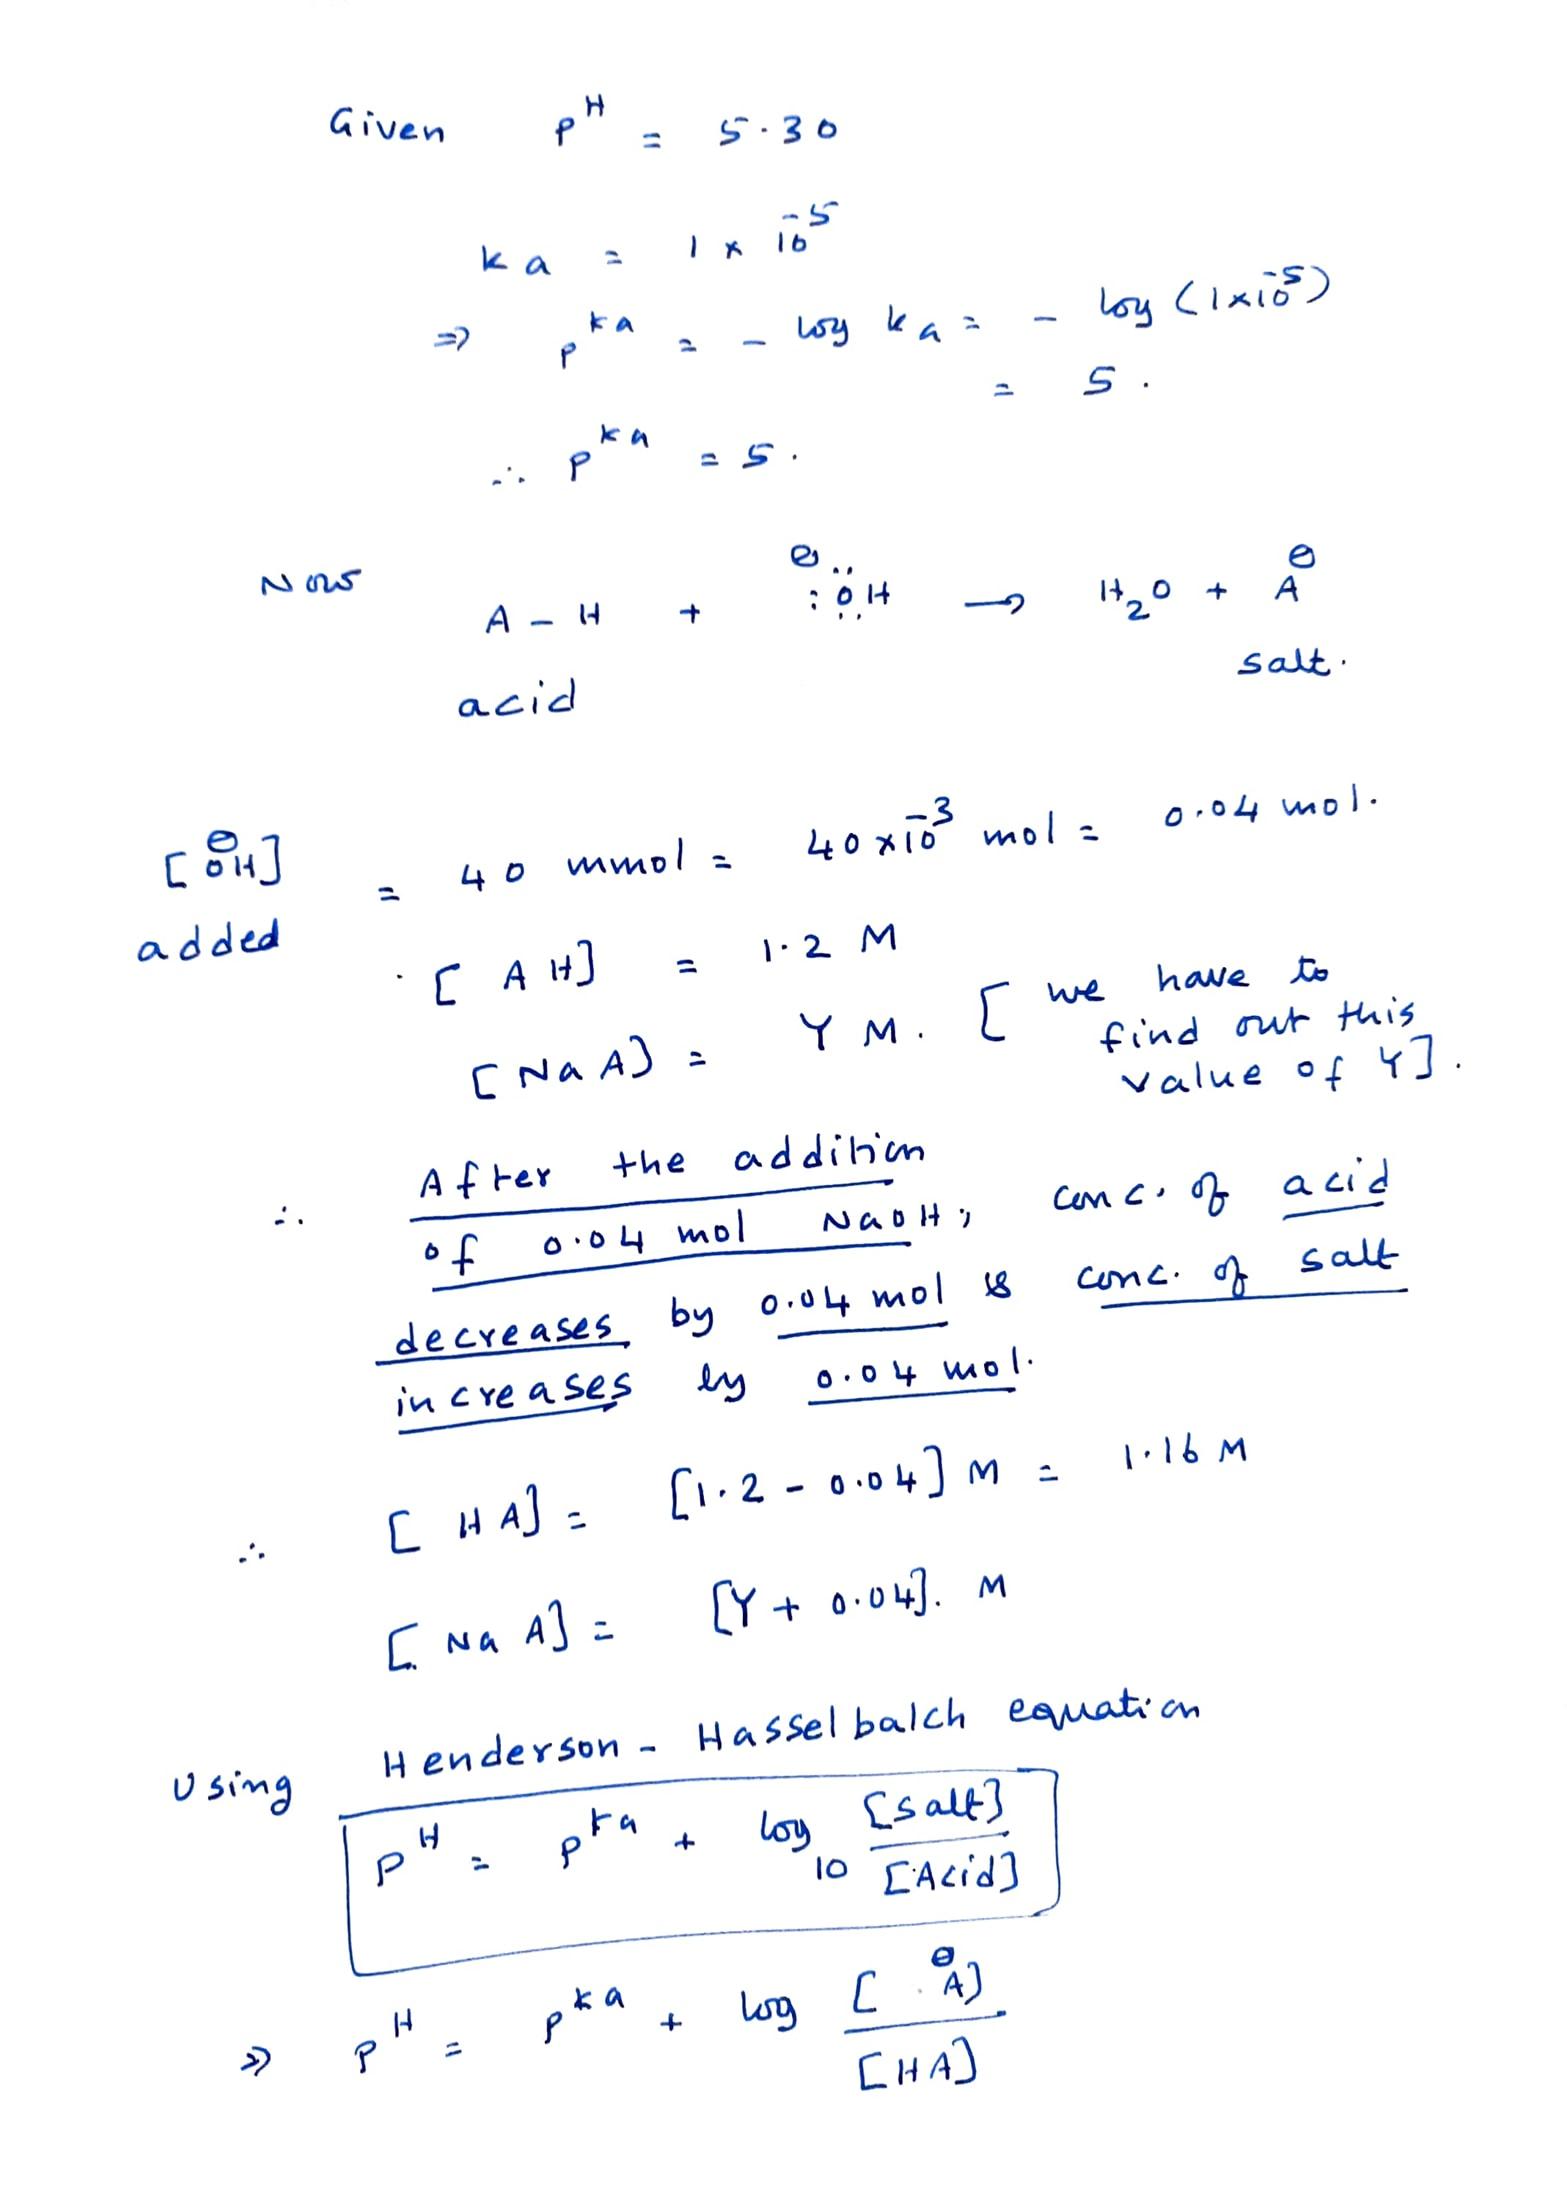 Given pᴴ = 5.30
ka = 1 × 10⁻⁵
⇒ pᵏᵃ = - log ka = - log (1×10⁻⁵)
= 5.
∴ pᵏᵃ = 5.
Now A - H + :ÖH⊖ → H₂O + A⊖
acid salt.
[OH⊖] added = 40 mmol = 40×10⁻³ mol = 0.04 mol.
[AH] = 1.2 M
[NaA] = Y M. [we have to
find out this
value of Y].
∴ After the addition
of 0.04 mol NaOH, conc. of acid
decreases by 0.04 mol & conc. of salt
increases by 0.04 mol.
∴ [HA] = [1.2 - 0.04] M = 1.16 M
[NaA] = [Y + 0.04]. M
Using Henderson - Hasselbalch equation
pᴴ = pᵏᵃ + log₁₀ [salt]/[Acid]
⇒ pᴴ = pᵏᵃ + log [A⊖]/[HA]